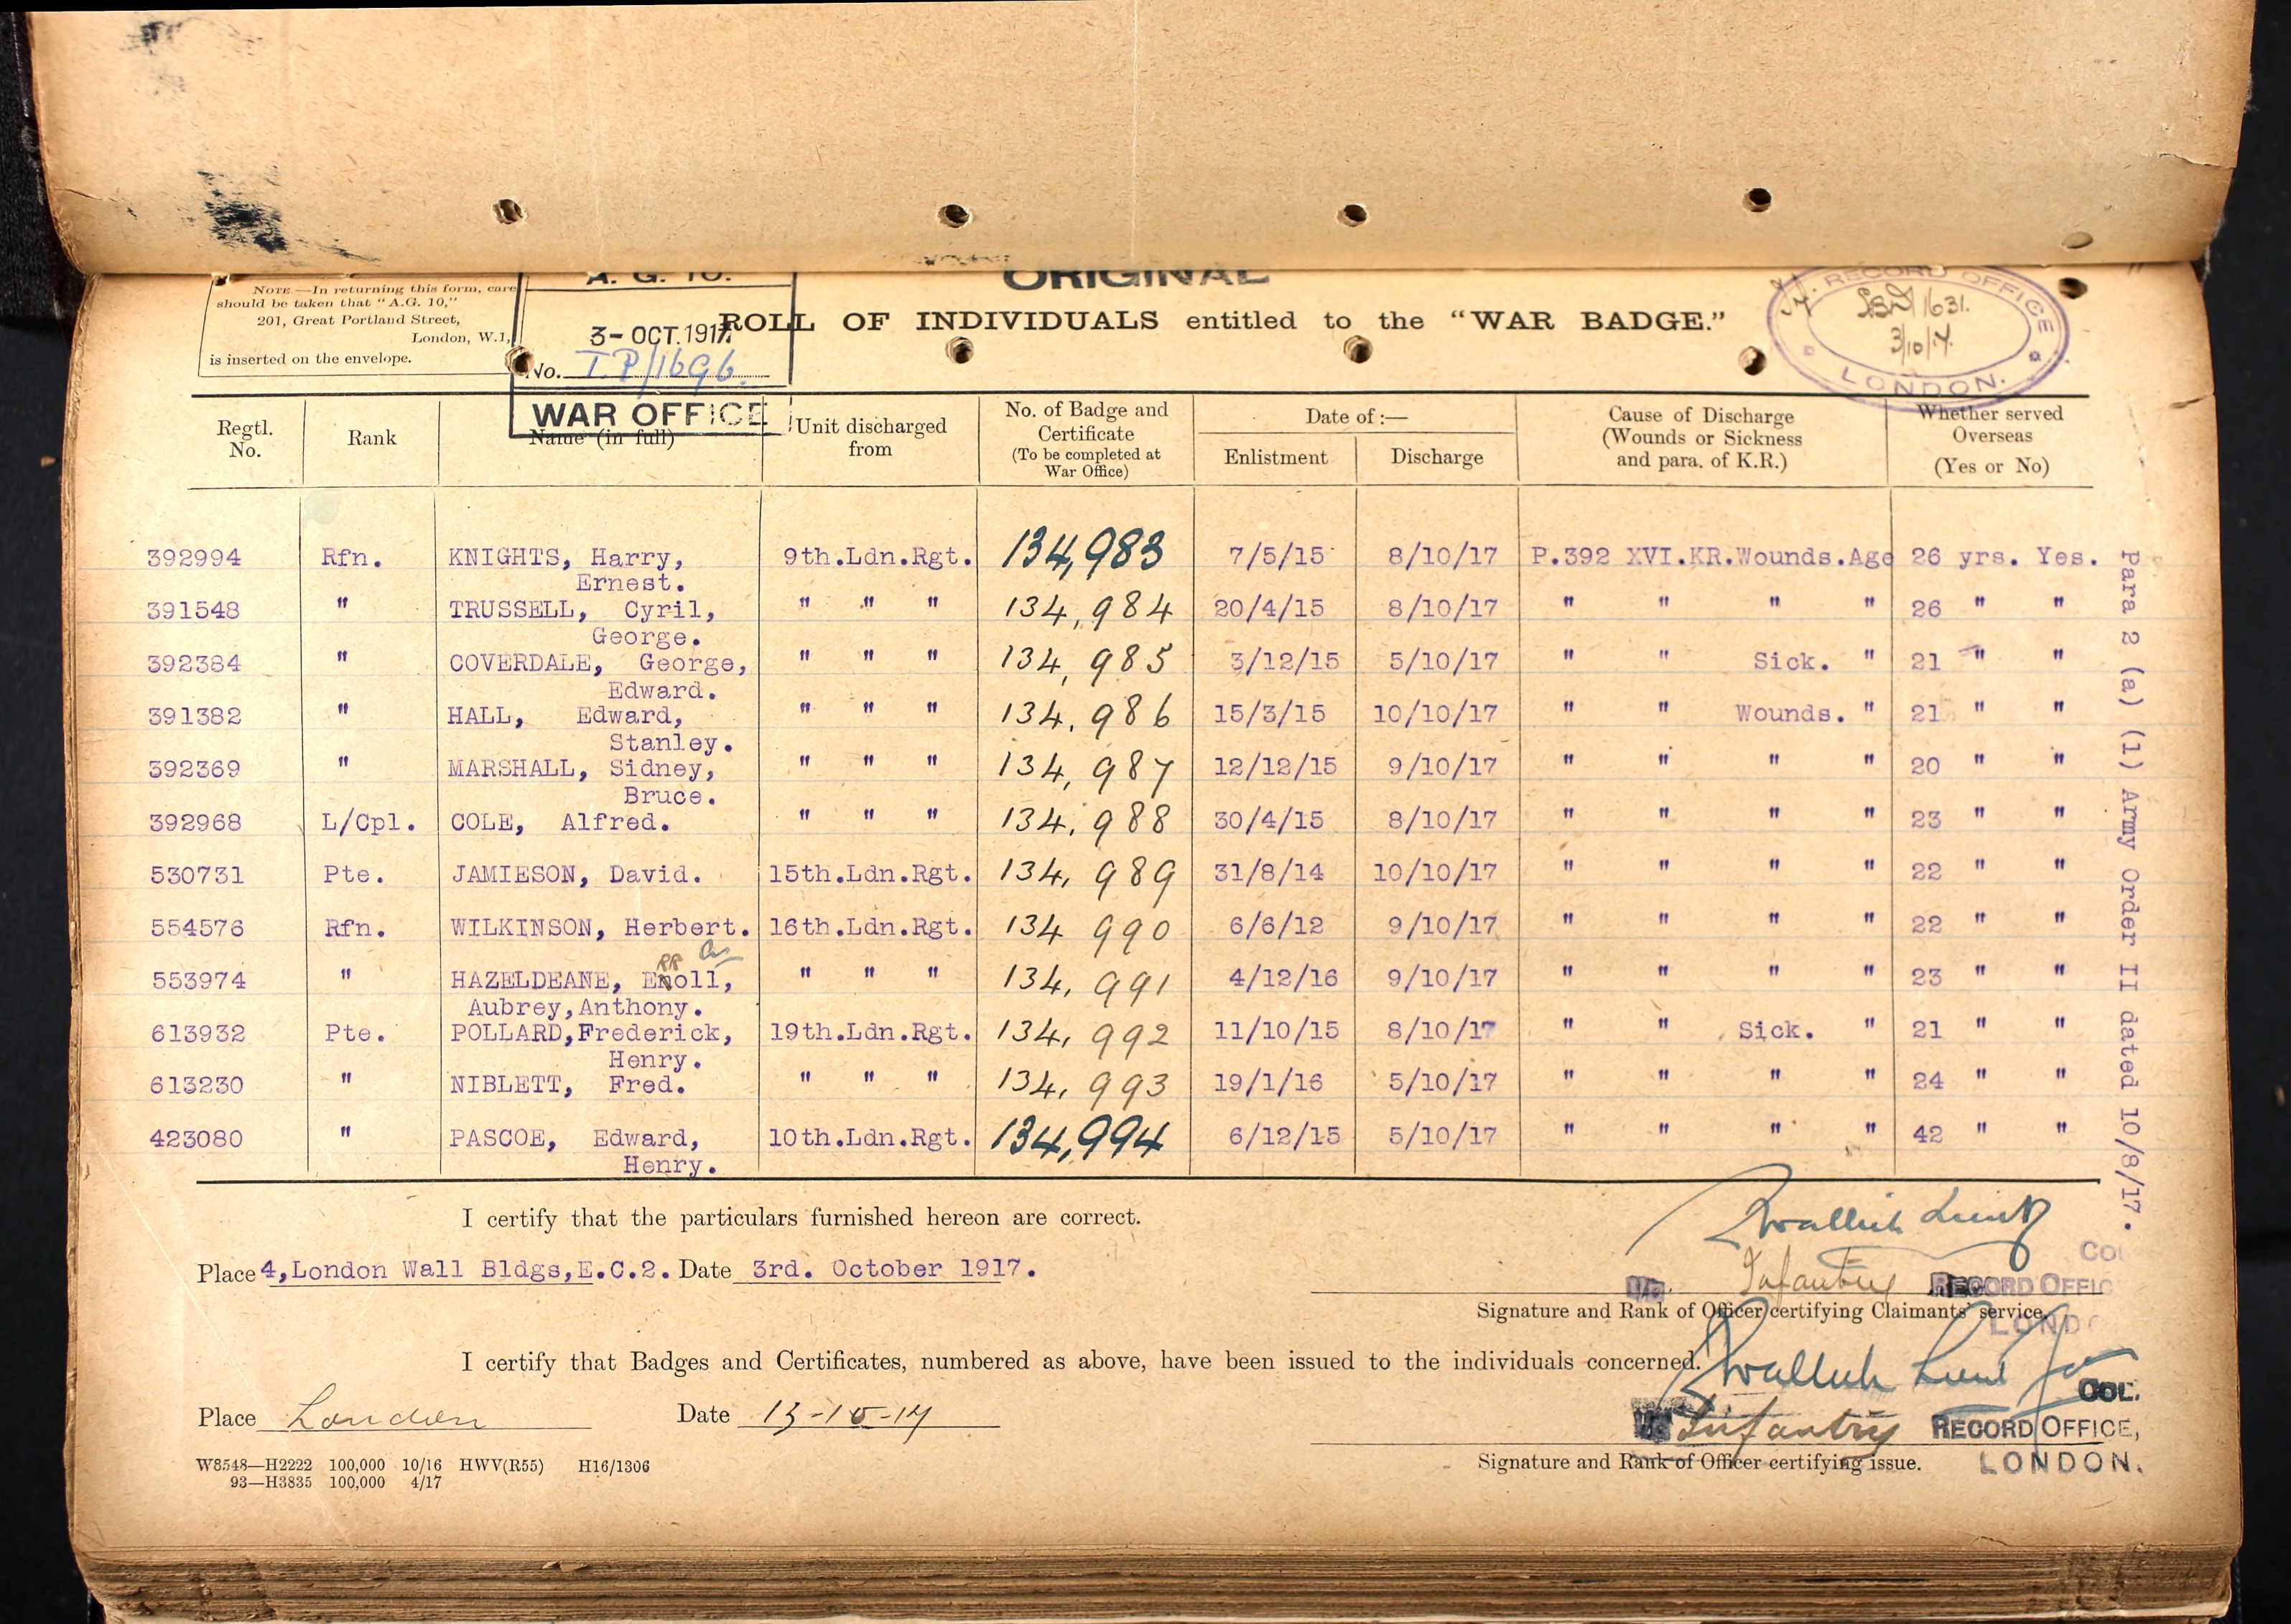 A. G. 10.
ORIGINAL
NOTE.—In returning this form, care
should be taken that "A.G. 10,"
201, Great Portland Street,
London, W.1,
is inserted on the envelope.
3-OCT.1917
No. T.P/1696.
WAR OFFICE
ROLL OF INDIVIDUALS entitled to the "WAR BADGE."
RECORD OFFICE
1631.
3/10/17.
LONDON.
Regtl. No. Rank Name (in full) Unit discharged from No. of Badge and Certificate (To be completed at War Office) Date of:— Enlistment Discharge Cause of Discharge (Wounds or Sickness and para. of K.R.) Whether served Overseas (Yes or No)
392994 Rfn. KNIGHTS, Harry, 9th.Ldn.Rgt. 134,983 7/5/15 8/10/17 P.392 XVI.KR.Wounds.Age 26 yrs. Yes.
Ernest.
391548 " TRUSSELL, Cyril, " " " 134,984 20/4/15 8/10/17 " " " " 26 " "
George.
392384 " COVERDALE, George, " " " 134,985 3/12/15 5/10/17 " " Sick. " 21 " "
Edward.
391382 " HALL, Edward, " " " 134,986 15/3/15 10/10/17 " " Wounds. " 21 " "
Stanley.
392369 " MARSHALL, Sidney, " " " 134,987 12/12/15 9/10/17 " " " " 20 " "
Bruce.
392968 L/Cpl. COLE, Alfred. " " " 134,988 30/4/15 8/10/17 " " " " 23 " "
530731 Pte. JAMIESON, David. 15th.Ldn.Rgt. 134,989 31/8/14 10/10/17 " " " " 22 " "
554576 Rfn. WILKINSON, Herbert. 16th.Ldn.Rgt. 134 990 6/6/12 9/10/17 " " " " 22 " "
RR
553974 " HAZELDEANE, Enoll, " " " 134,991 4/12/16 9/10/17 " " " " 23 " "
Aubrey,Anthony.
613932 Pte. POLLARD,Frederick, 19th.Ldn.Rgt. 134,992 11/10/15 8/10/17 " " Sick. " 21 " "
Henry.
613230 " NIBLETT, Fred. " " " 134,993 19/1/16 5/10/17 " " " " 24 " "
423080 " PASCOE, Edward, 10th.Ldn.Rgt. 134,994 6/12/15 5/10/17 " " " " 42 " "
Henry.
Para 2 (a) (1) Army Order II dated 10/8/17.
I certify that the particulars furnished hereon are correct.
Place 4,London Wall Bldgs,E.C.2. Date 3rd. October 1917.
Infantry RECORD OFFIC
Signature and Rank of Officer certifying Claimants' service.
LOND
I certify that Badges and Certificates, numbered as above, have been issued to the individuals concerned.
COL.
Place London Date 13-10-17
Infantry RECORD OFFICE,
Signature and Rank of Officer certifying issue.
LONDON.
W8548—H2222 100,000 10/16 HWV(R55) H16/1306
93—H3835 100,000 4/17